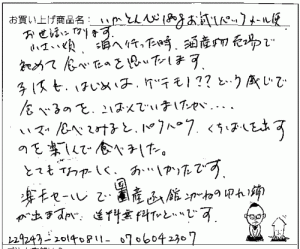 お買い上げ商品名：いかとんび180gお試しパックメール便
お世話になります。
小さい頃、海へ行った時、海産物売場で
初めて食べたのを思いだします。
子供も、はじめは、ゲテモノ??という感じで
食べるのを、こばんでいましたが、...
いざ食べてみると、パクパク、くちばしを出す
のを楽しんで食べました。
とてもなつかしく、おいしかったです。
楽天セールで国産函館こがね
が出ますが、送料無料だといいです。
229243-20140811-0706042307